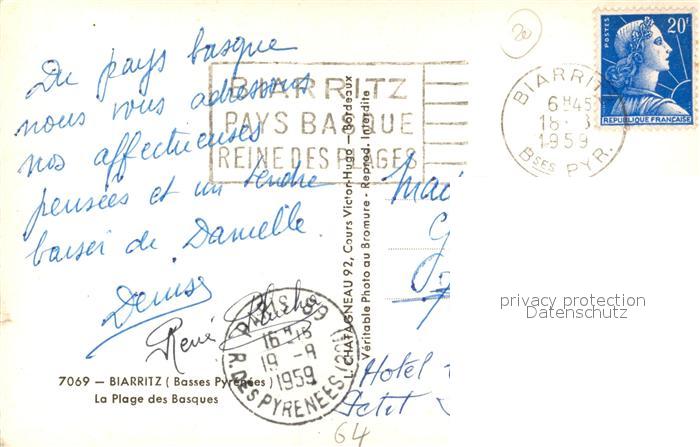 Du pays basque
nous vous adressons
nos affectueuses
pensées et un tendre
baiser de Danielle.
Denise
René
BIARRITZ
PAYS BASQUE
REINE DES PLAGES
BIARRITZ
6H45
18
1959
Bses PYR.
POSTES
20F
REPUBLIQUE FRANÇAISE
2e
L. CHATAGNEAU 92, Cours Victor-Hugo — Bordeaux
Véritable Photo au Bromure - Reprod. Interdite
PARIS 69
16H
19 - 9
1959
R. DES PYRENEES (20e)
Hotel
Petit
privacy protection
Datenschutz
7069 — BIARRITZ ( Basses Pyrénées )
La Plage des Basques
64